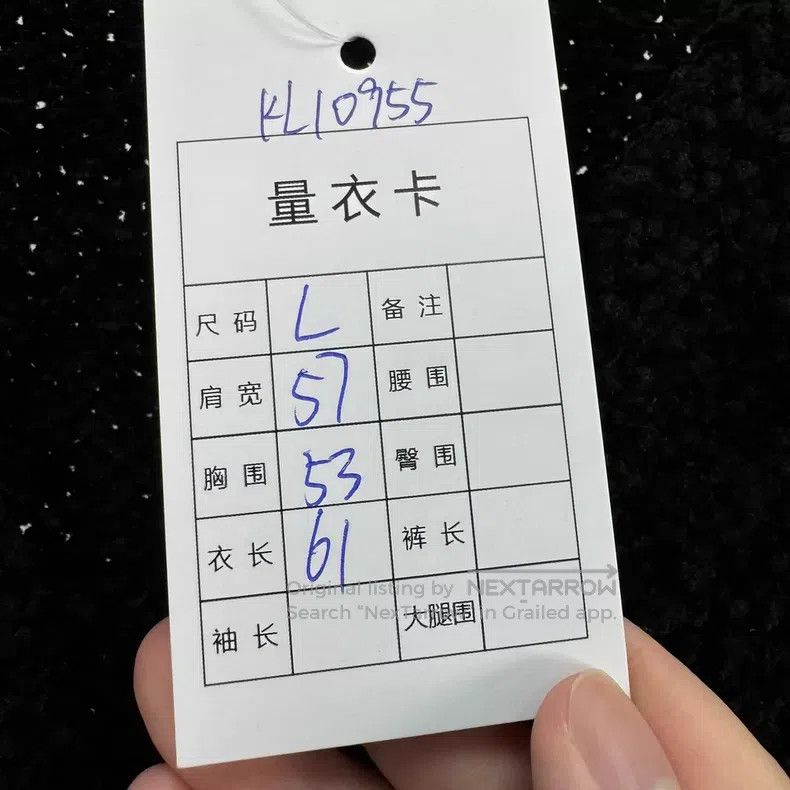 KL10955
量衣卡
尺码 L 备注
肩宽 57 腰围
胸围 53 臀围
衣长 61 裤长
Original listing by NEXTARROW
Search "NexTArrow" in Grailed app.
袖长 大腿围